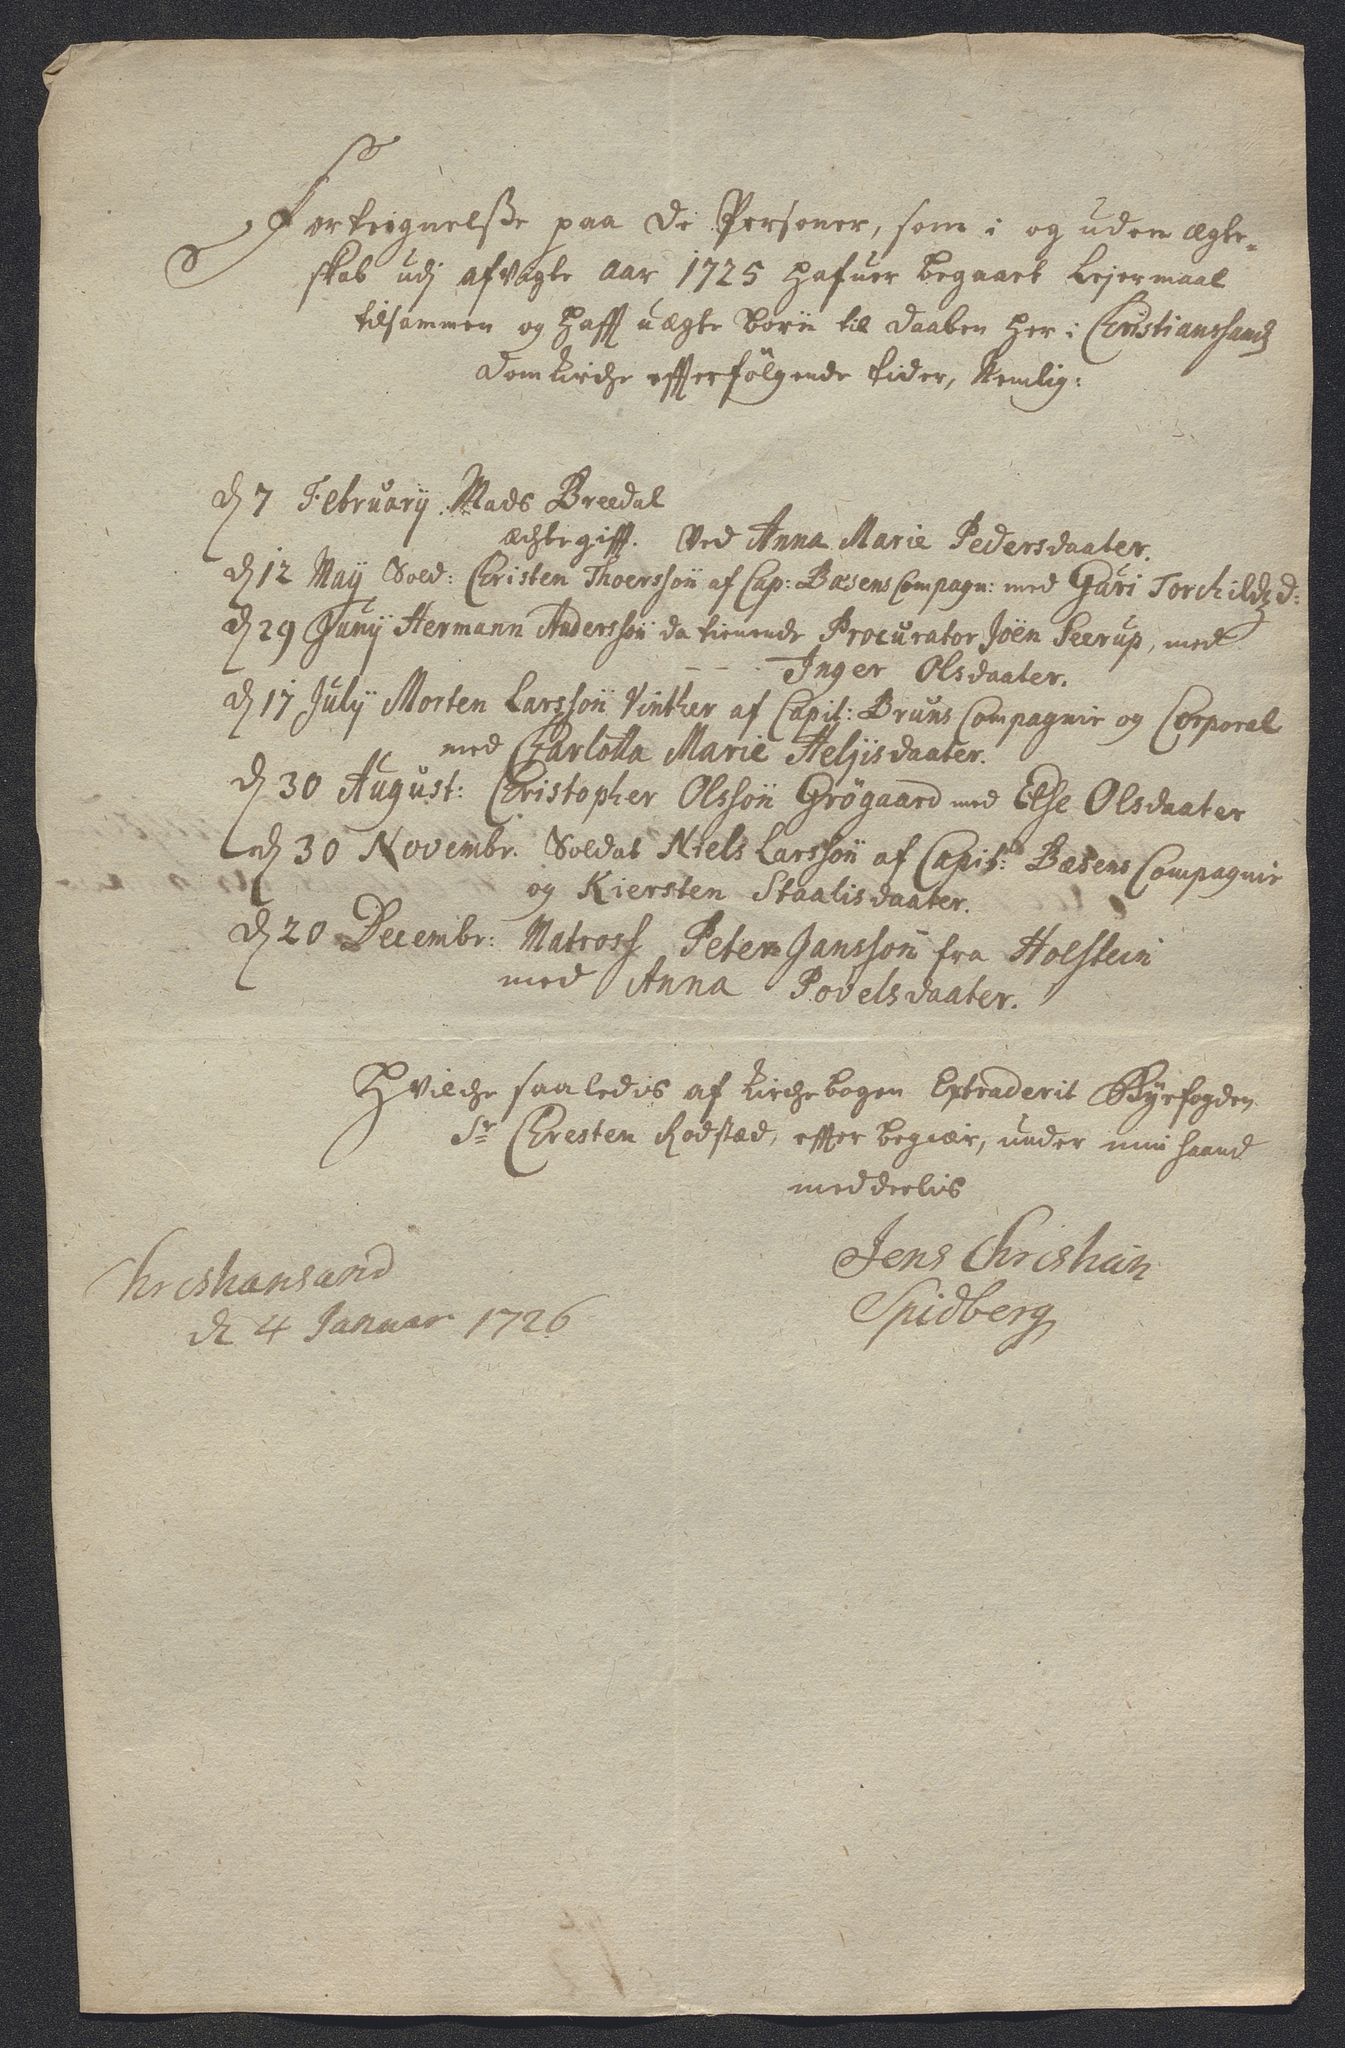 Fortegnelsse paa de Personer, som i og uden ægte-
skab udj afvigte aar 1725 hafuer begaaet Lejermaal
tilsammen og hafft uægte børn til daaben her i Christianssands
domkirche effterfölgende tider, Nemlig:
d 7 February Mads Breedal
ächtegifft. Ved Anna Marie Pedersdaater.
d 12 Maÿ Sold: Christen Thoerssön af Cap: Bæsens Compagn: med Gúri Torchildzd:
d 29 Junÿ Hermann Anderssön da tienende Procurator Joën Seerup, med
Inger Olsdaater.
d 17 Julÿ Morten Larssön Vinther af Capit: Bruns Compagnie og Corporal
med Charlotta Marie Heljisdaater.
d 30 August: Christopher Olssön Grögaard med Else Olsdaater
d 30 Novembr. Soldat Niels Larssön af Capit: Bæsens Compagnie
og Kiersten Staalisdaater.
d 20 Decembr: Matross Peter Janssön fra Holstein
med Anna Povelsdaater.
Hvilche saaledis af Kirchebogen Extraderit Byefogden
Sr Chresten Rodstæd, effter begiær, under min haand
meddeelis
Jens Christian
Spidberg
Christiansand
d 4 Januar 1726